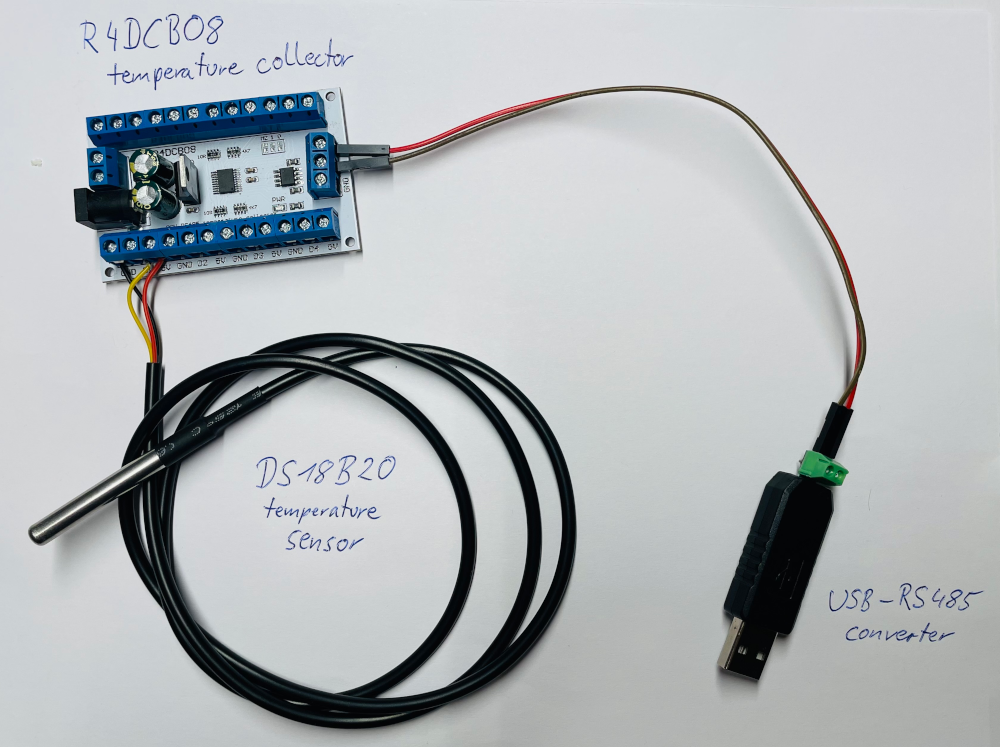 R4DCB08
temperature collector
R4DCB08
4K7
PWR
4K7
GND
5V GND D2 5V GND D3 5V GND D4 5V
DS18B20
temperature
sensor
USB-RS485
converter